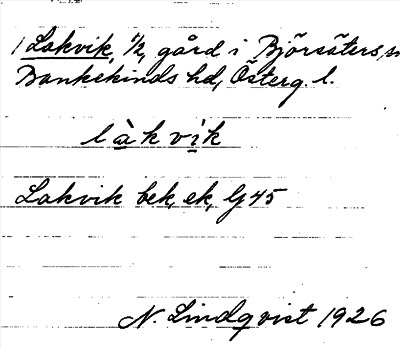 1 Lakvik, 1/2, gård i Björsäters, sn
Bankekinds hd, Österg. l.
l à k v i k
Lakvik bek, ek, G 45
N. Lindqvist 1926